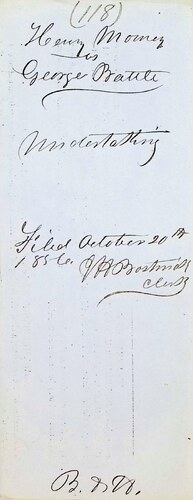 (118)
Henry Mowney
vs
George Battle
Undertaking
Filed October 20th
1856. J H Bostwick
Clerk
B. & N.